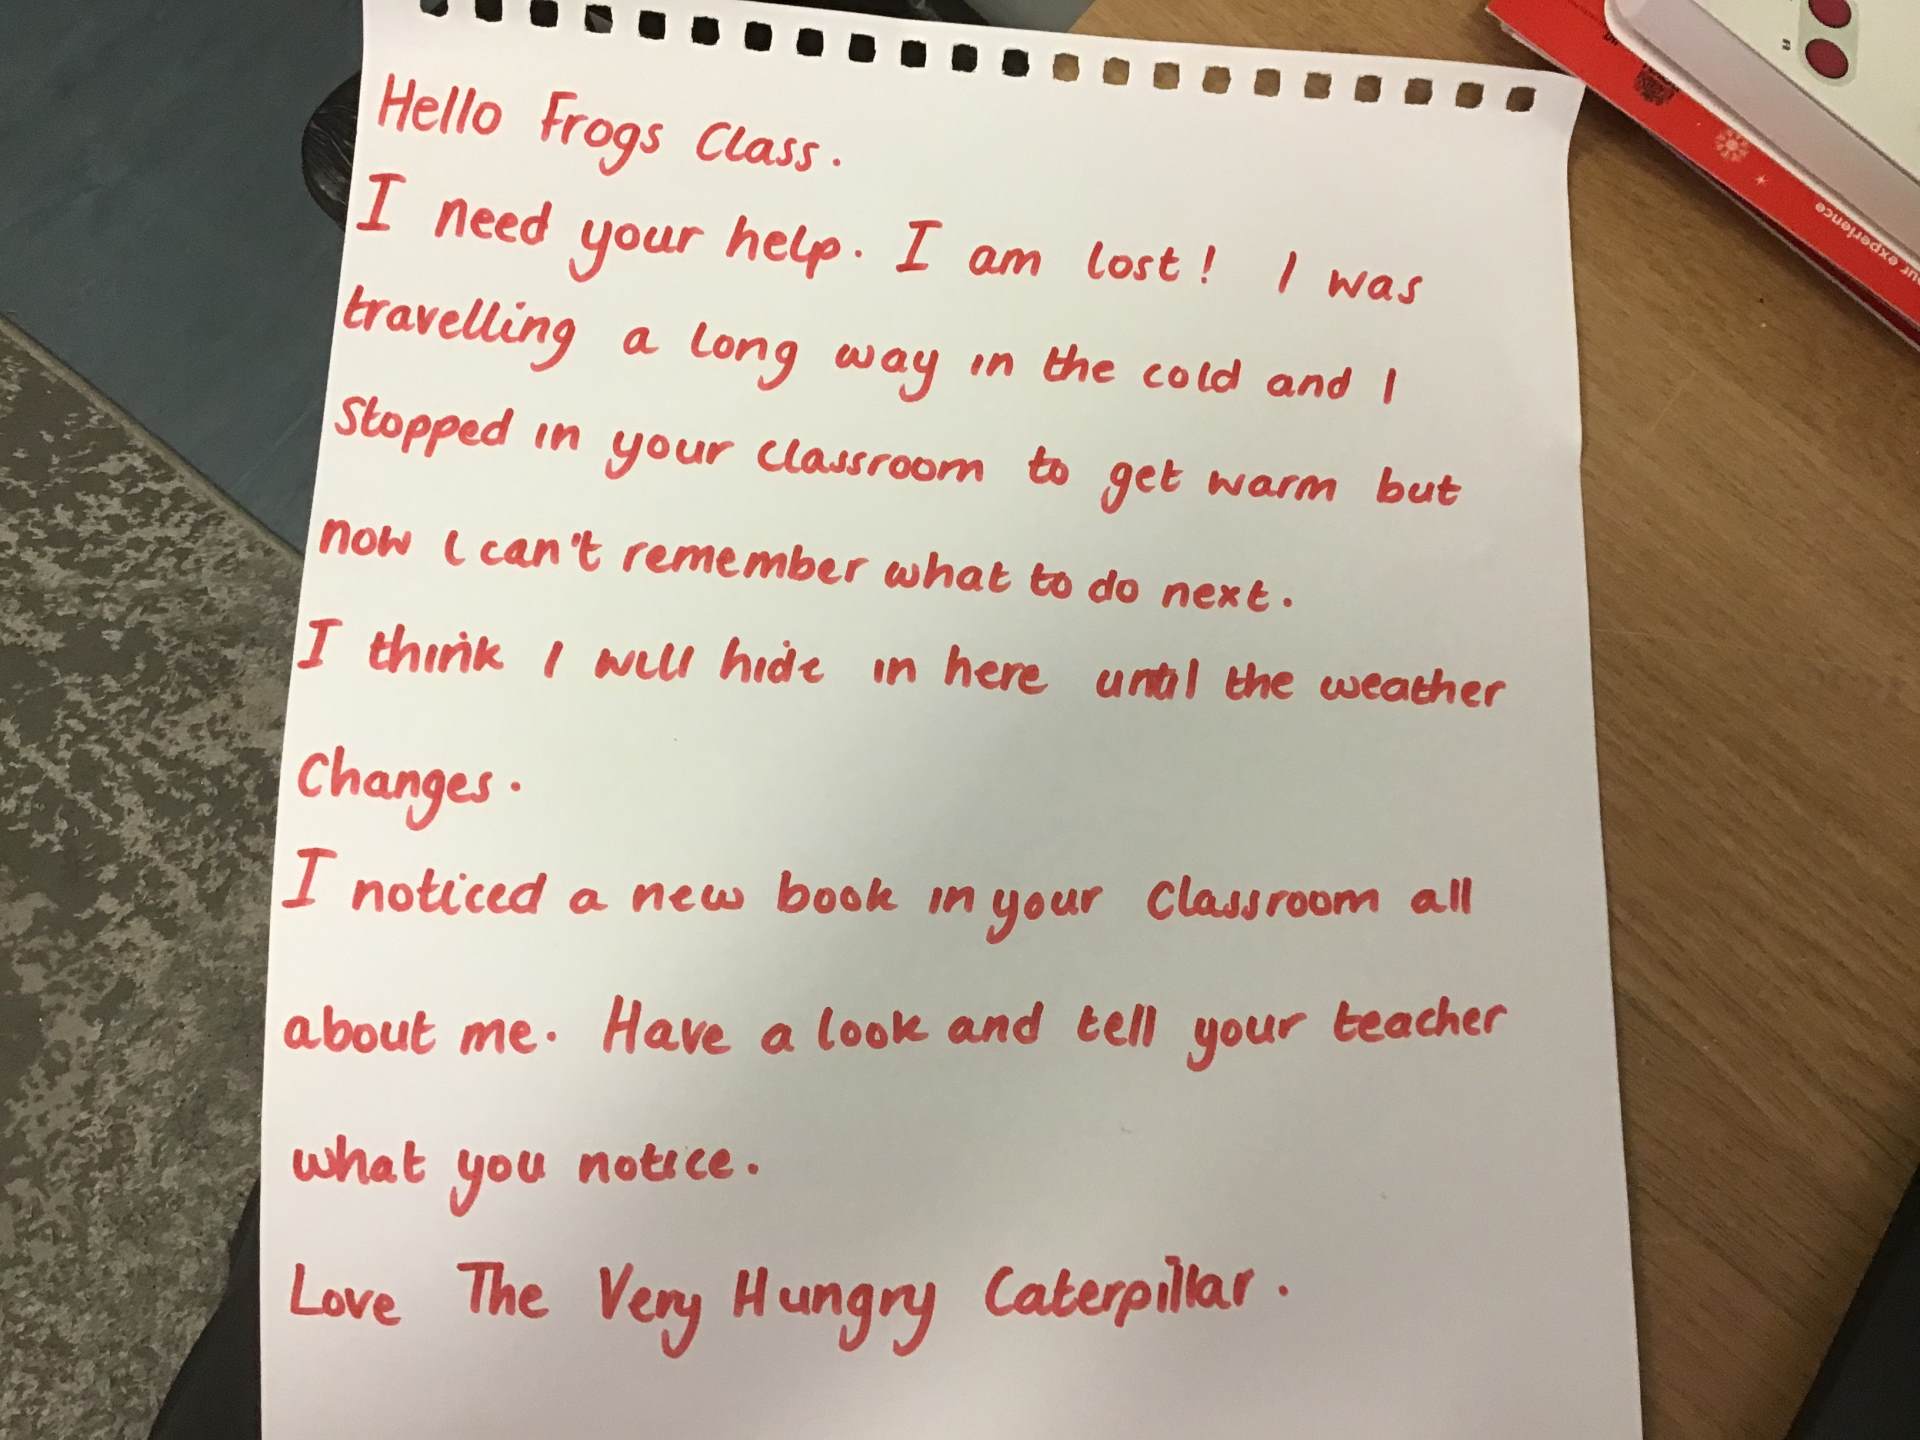 Hello Frogs Class.
I need your help. I am lost! I was
travelling a long way in the cold and I
stopped in your classroom to get warm but
now I can't remember what to do next.
I think I will hide in here until the weather
changes.
I noticed a new book in your classroom all
about me. Have a look and tell your teacher
what you notice.
Love The Very Hungry Caterpillar.
ur experience